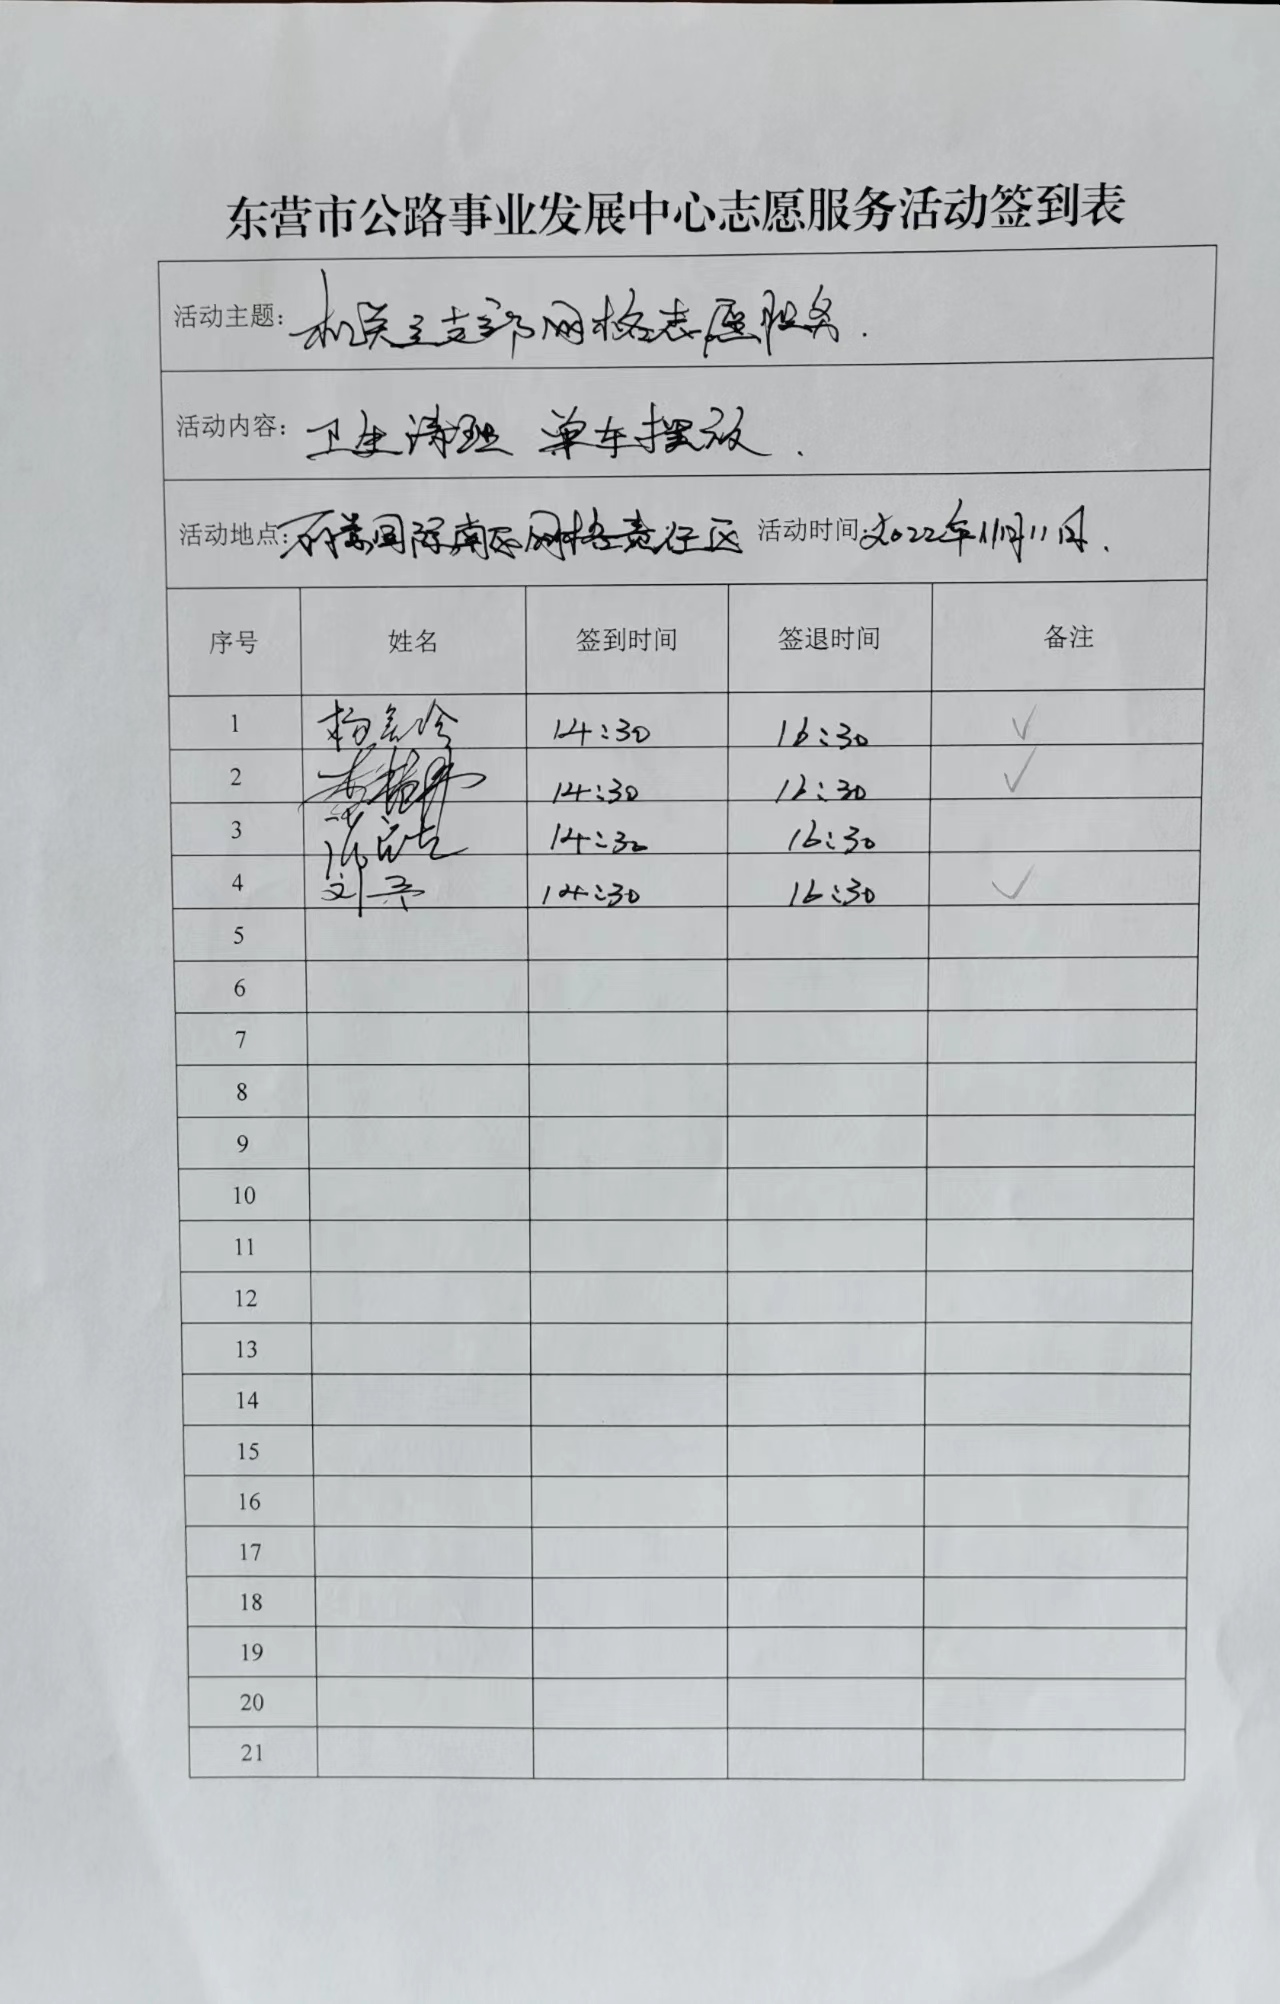 东营市公路事业发展中心志愿服务活动签到表
活动主题: 机关三支部网格志愿服务.
活动内容: 卫生清理 单车摆放.
活动地点: 国际南区网格责任区 活动时间: 2022年11月11日.
序号 姓名 签到时间 签退时间 备注
1 14:30 16:30 ✓
2 14:30 16:30 ✓
3 14:30 16:30
4 刘 14:30 16:30 ✓
5
6
7
8
9
10
11
12
13
14
15
16
17
18
19
20
21